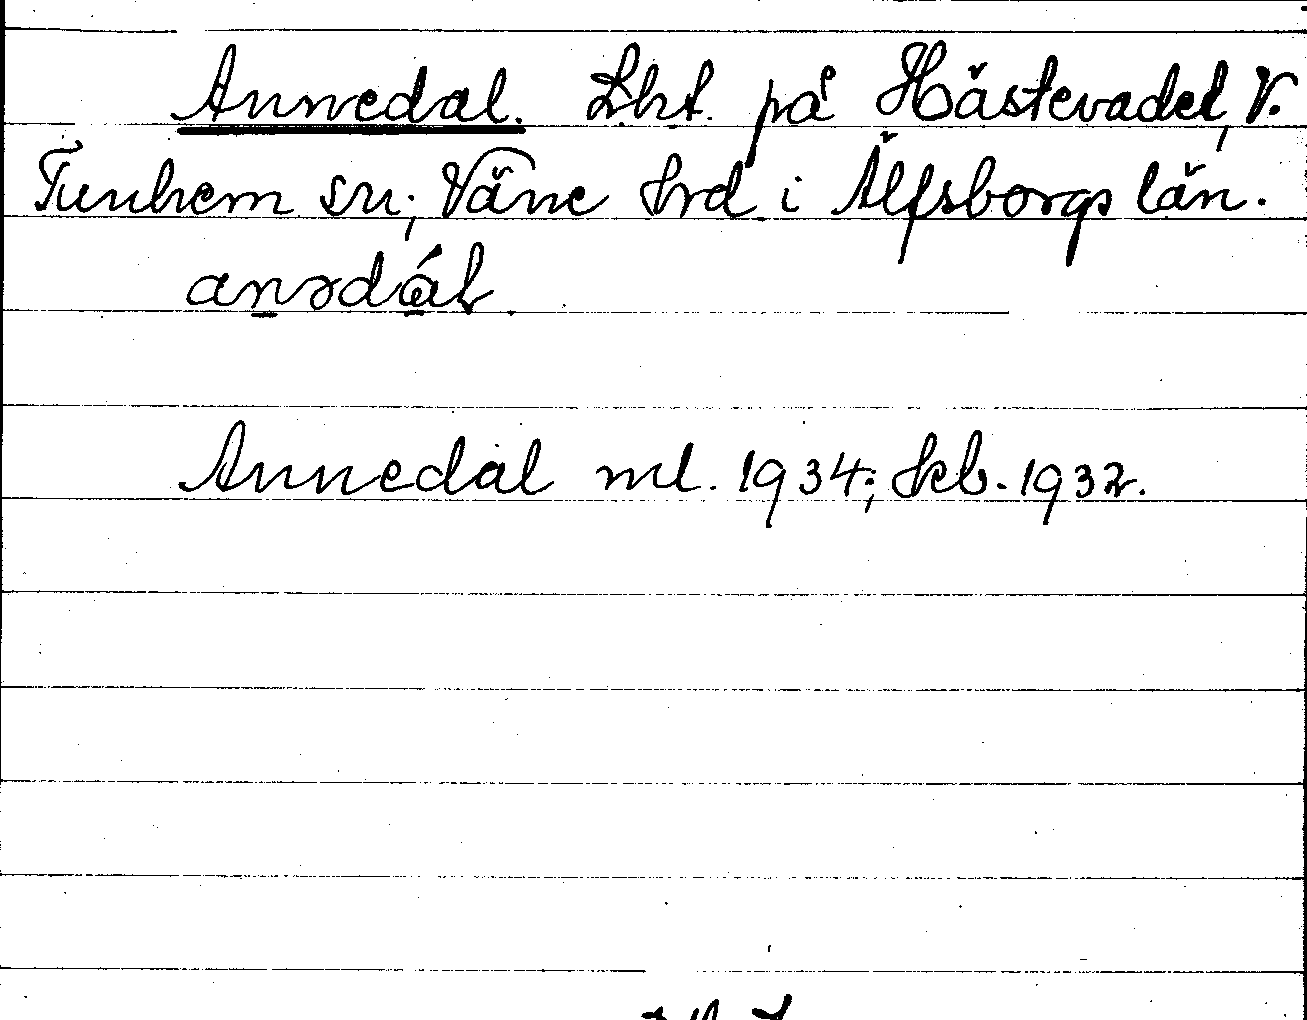 Annedal. Lht. på Hästevadet, V.
Tunhem sn; Väne hrd i Älfsborgs län.
anədál.
Annedal ml. 1934; skb. 1932.